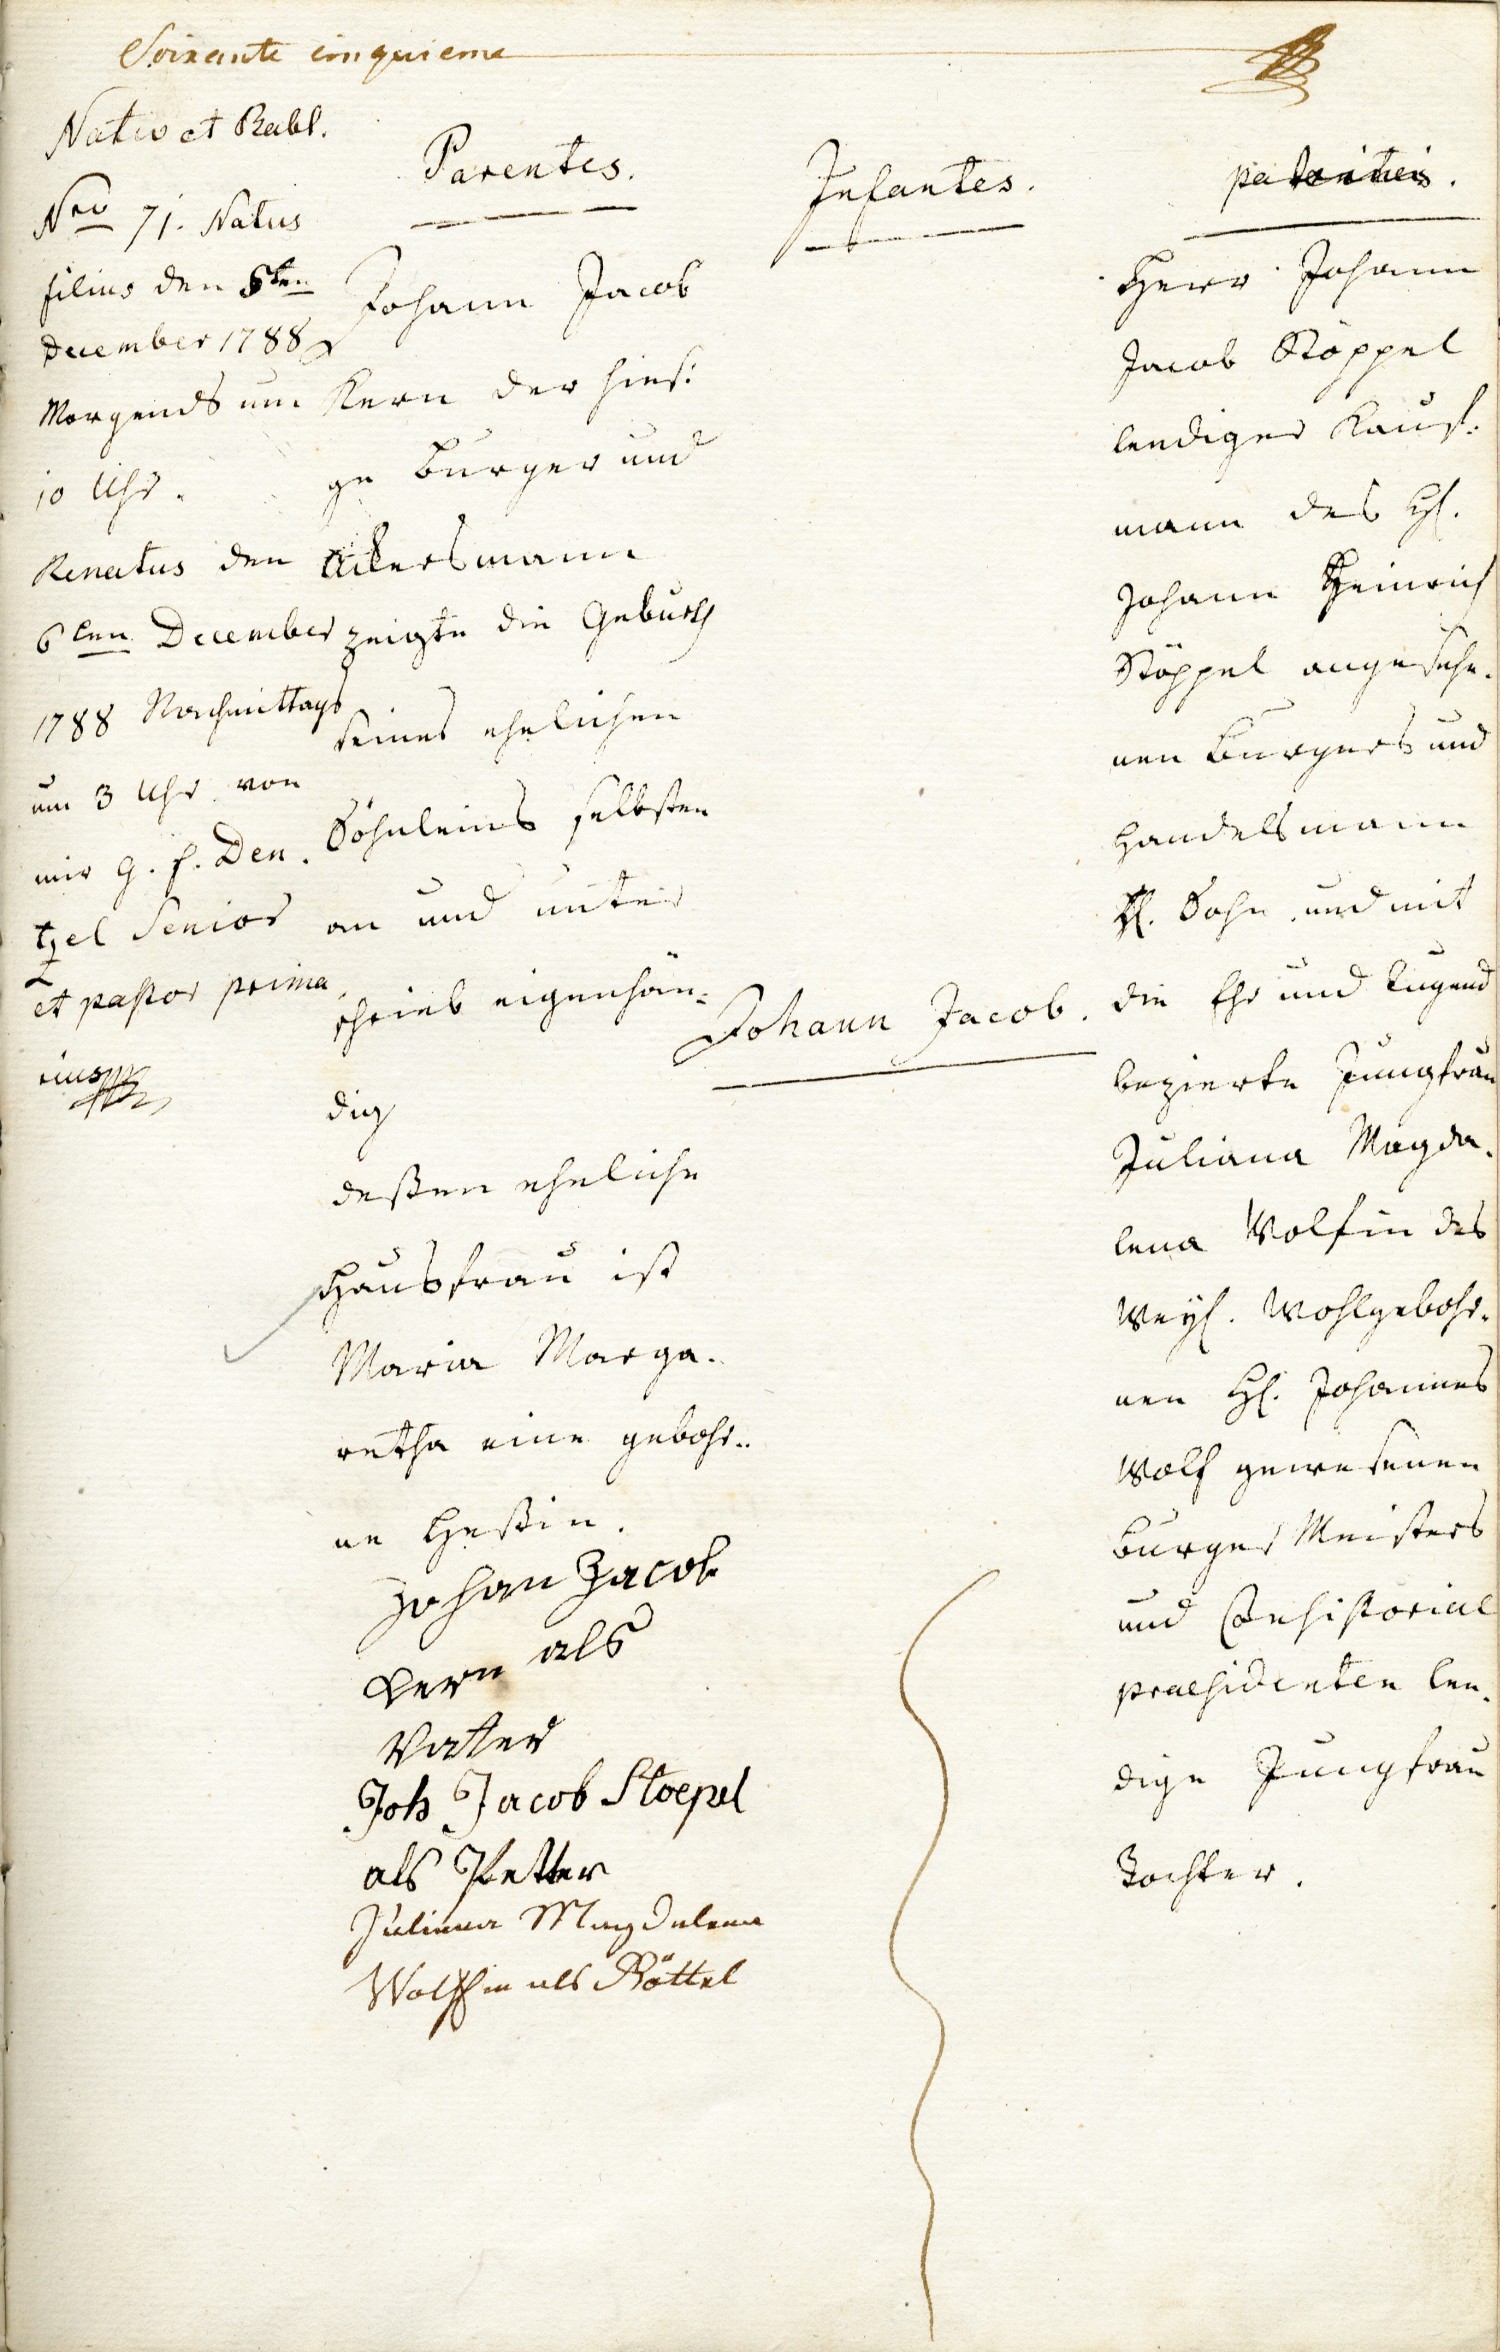 Soixante cinquieme
Nativ et Rebl.
Nro 71. Natus
filius den 5ten
December 1788
Morgends um
10 Uhr.
Renatus den
6ten December
1788 Nachmittags
um 3 Uhr von
mir G. f. Den.
tzel Senior
et pastor prima
rius
Parentes.
Johann Jacob
Kern der hiesi
ge burger und
Ackersmann
zeigte die Geburth
seines ehelichen
Söhnleins selbsten
an und unter
schrieb eigenhän-
dig
deßen eheliche
Hausfrau ist
Maria Marga.
retha eine gebohr..
ne Heßin.
Johan Jacob
Kern als
Vater
Joh Jacob Stoepel
als Petter
Juliana Magdalena
Wolffin als Göttel
Infantes.
Johann Jacob.
Herr Johann
Jacob Stöppel
lendiger Kauf:
mann des H.
Johann Heinrich
Stöppel angesehe.
nen burgers und
Handelsmann
H. Sohn und mit
die Ehr und tugend
bezierte Jungfrau
Juliana Magda.
lena Wolfin des
Weyl. Wohlgebohr.
nen H. Johannes
Wolf gewesenen
burger Meisters
und Consistorial
praesidenten len.
dige Jungfrau
Tochter.